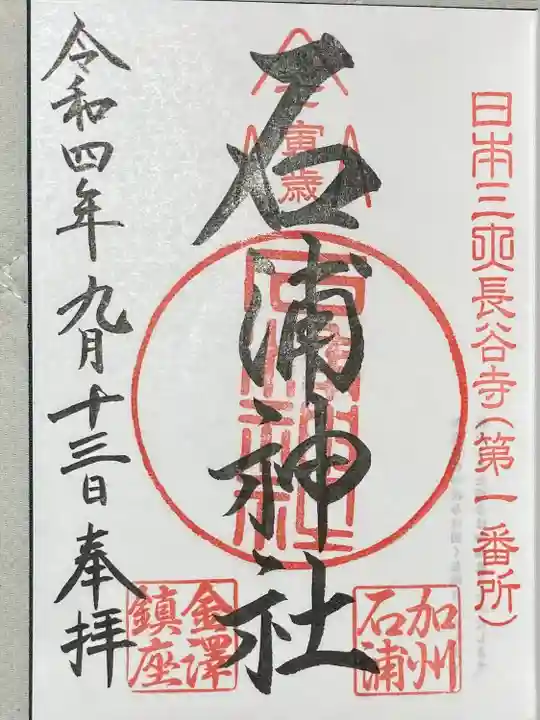 日本三大長谷寺(第一番所)
加州
石浦
壬寅歳
石浦神社
石浦神社
金澤
鎮座
令和四年九月十三日奉拝